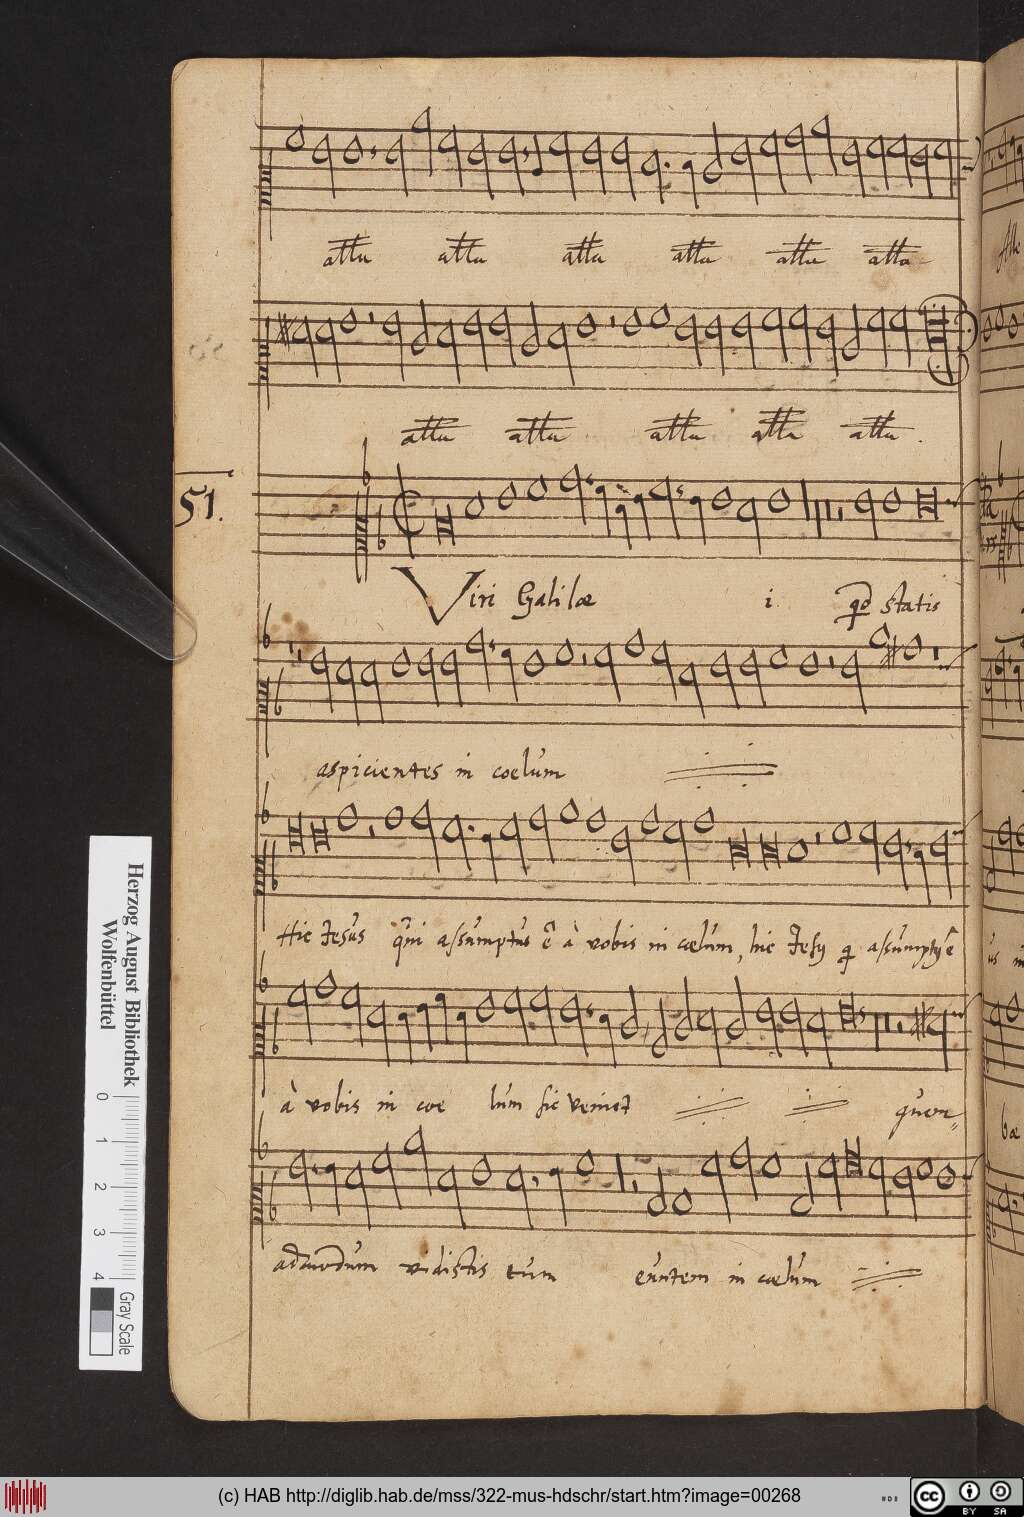 allā allā allā allā allā allā
allā allā allā allā allā
51.
Viri Galilæ i qd statis
aspicientes in coelum
Hic Jesus qui assumptus ē à vobis in cœlum, hic Jesus q assumptus ē
à vobis in coe lum sic veniet quem=
admodum vidistis eum euntem in cœlum
Herzog August Bibliothek
Wolfenbüttel
0 1 2 3 4
Gray Scale
(c) HAB http://diglib.hab.de/mss/322-mus-hdschr/start.htm?image=00268
cc
BY SA